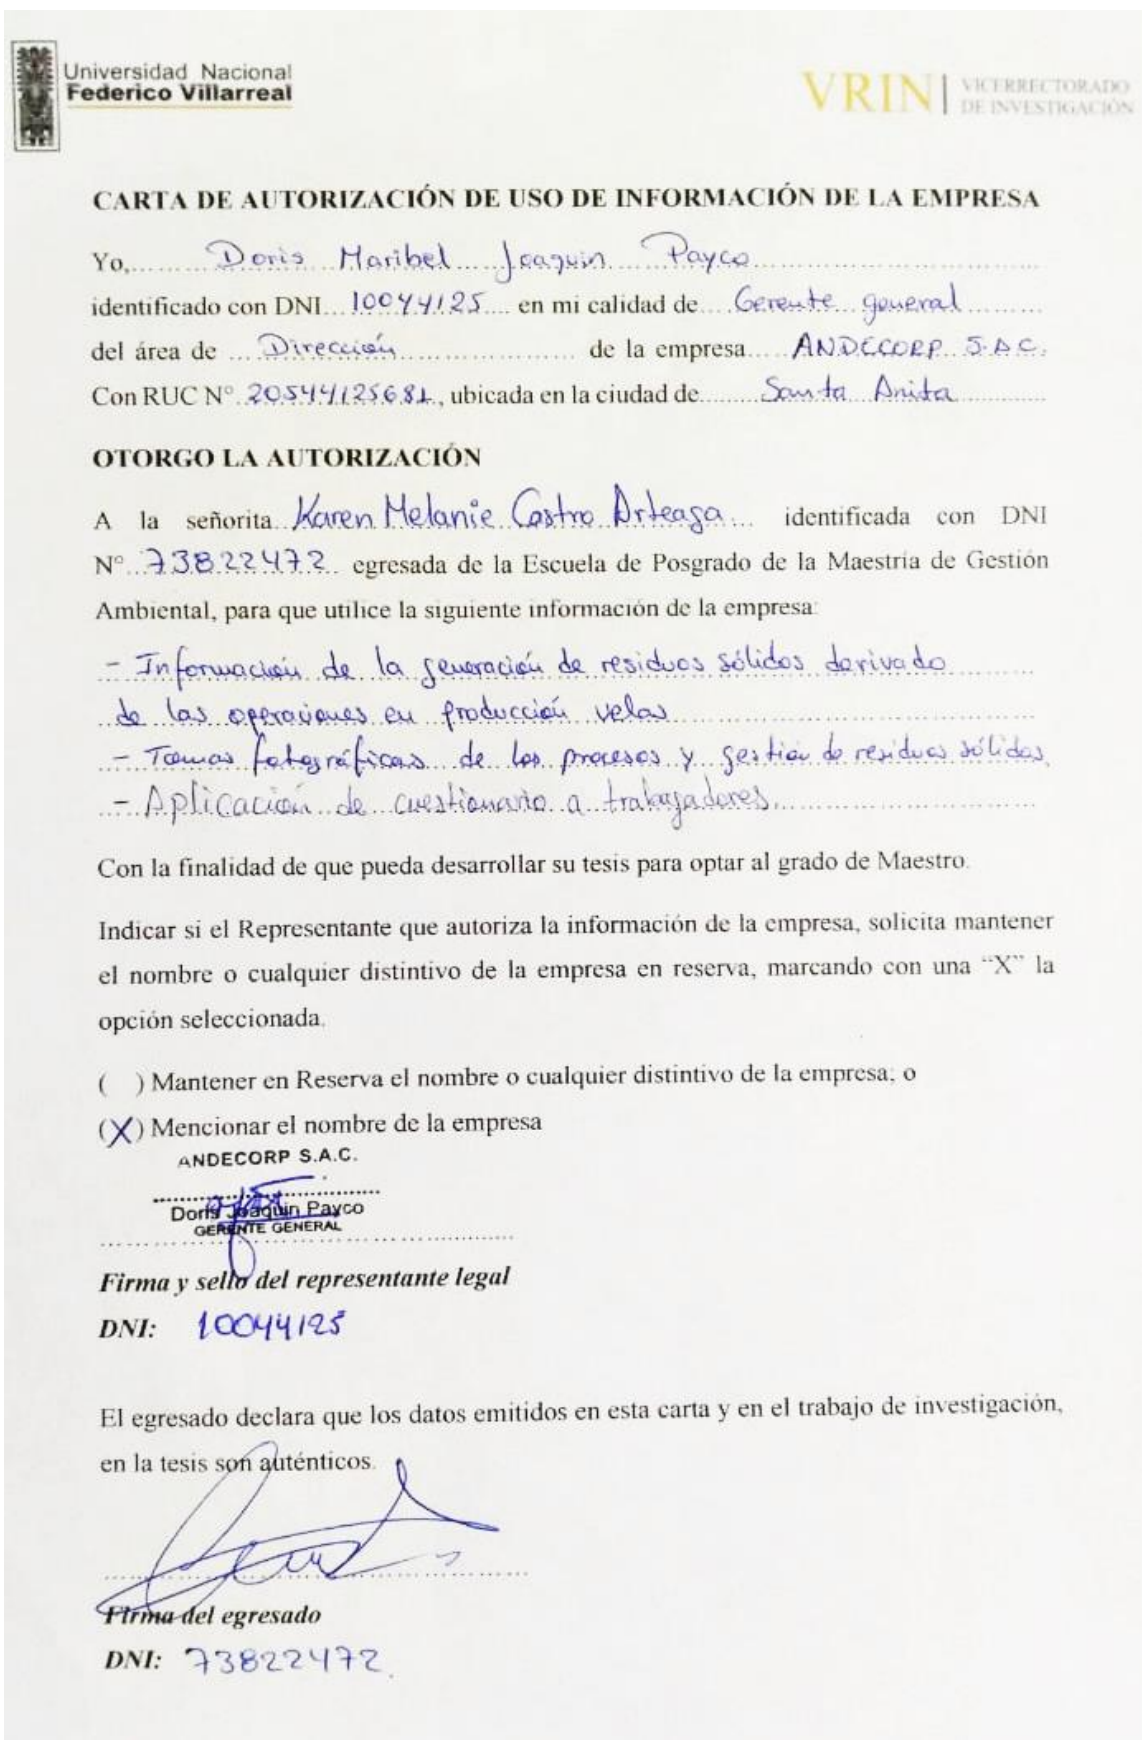 Universidad Nacional
Federico Villarreal
VRIN | VICERRECTORADO
DE INVESTIGACIÓN
CARTA DE AUTORIZACIÓN DE USO DE INFORMACIÓN DE LA EMPRESA
Yo, Doris Maribel Joaquin Payco
identificado con DNI 10044125 en mi calidad de Gerente general
del área de Dirección de la empresa ANDECORP S.A.C.
Con RUC N° 20544125681, ubicada en la ciudad de Santa Anita
OTORGO LA AUTORIZACIÓN
A la señorita Karen Melanie Castro Arteaga identificada con DNI
N° 73822472 egresada de la Escuela de Posgrado de la Maestría de Gestión
Ambiental, para que utilice la siguiente información de la empresa:
- Información de la generación de residuos sólidos derivado
de las operaciones en producción velas
- Tomas fotográficas de los procesos y gestión de residuos sólidos.
- Aplicación de cuestionario a trabajadores.
Con la finalidad de que pueda desarrollar su tesis para optar al grado de Maestro.
Indicar si el Representante que autoriza la información de la empresa, solicita mantener
el nombre o cualquier distintivo de la empresa en reserva, marcando con una “X” la
opción seleccionada.
( ) Mantener en Reserva el nombre o cualquier distintivo de la empresa; o
(X) Mencionar el nombre de la empresa
ANDECORP S.A.C.
Doris Joaquin Payco
GERENTE GENERAL
Firma y sello del representante legal
DNI: 10044125
El egresado declara que los datos emitidos en esta carta y en el trabajo de investigación,
en la tesis son auténticos.
Firma del egresado
DNI: 73822472